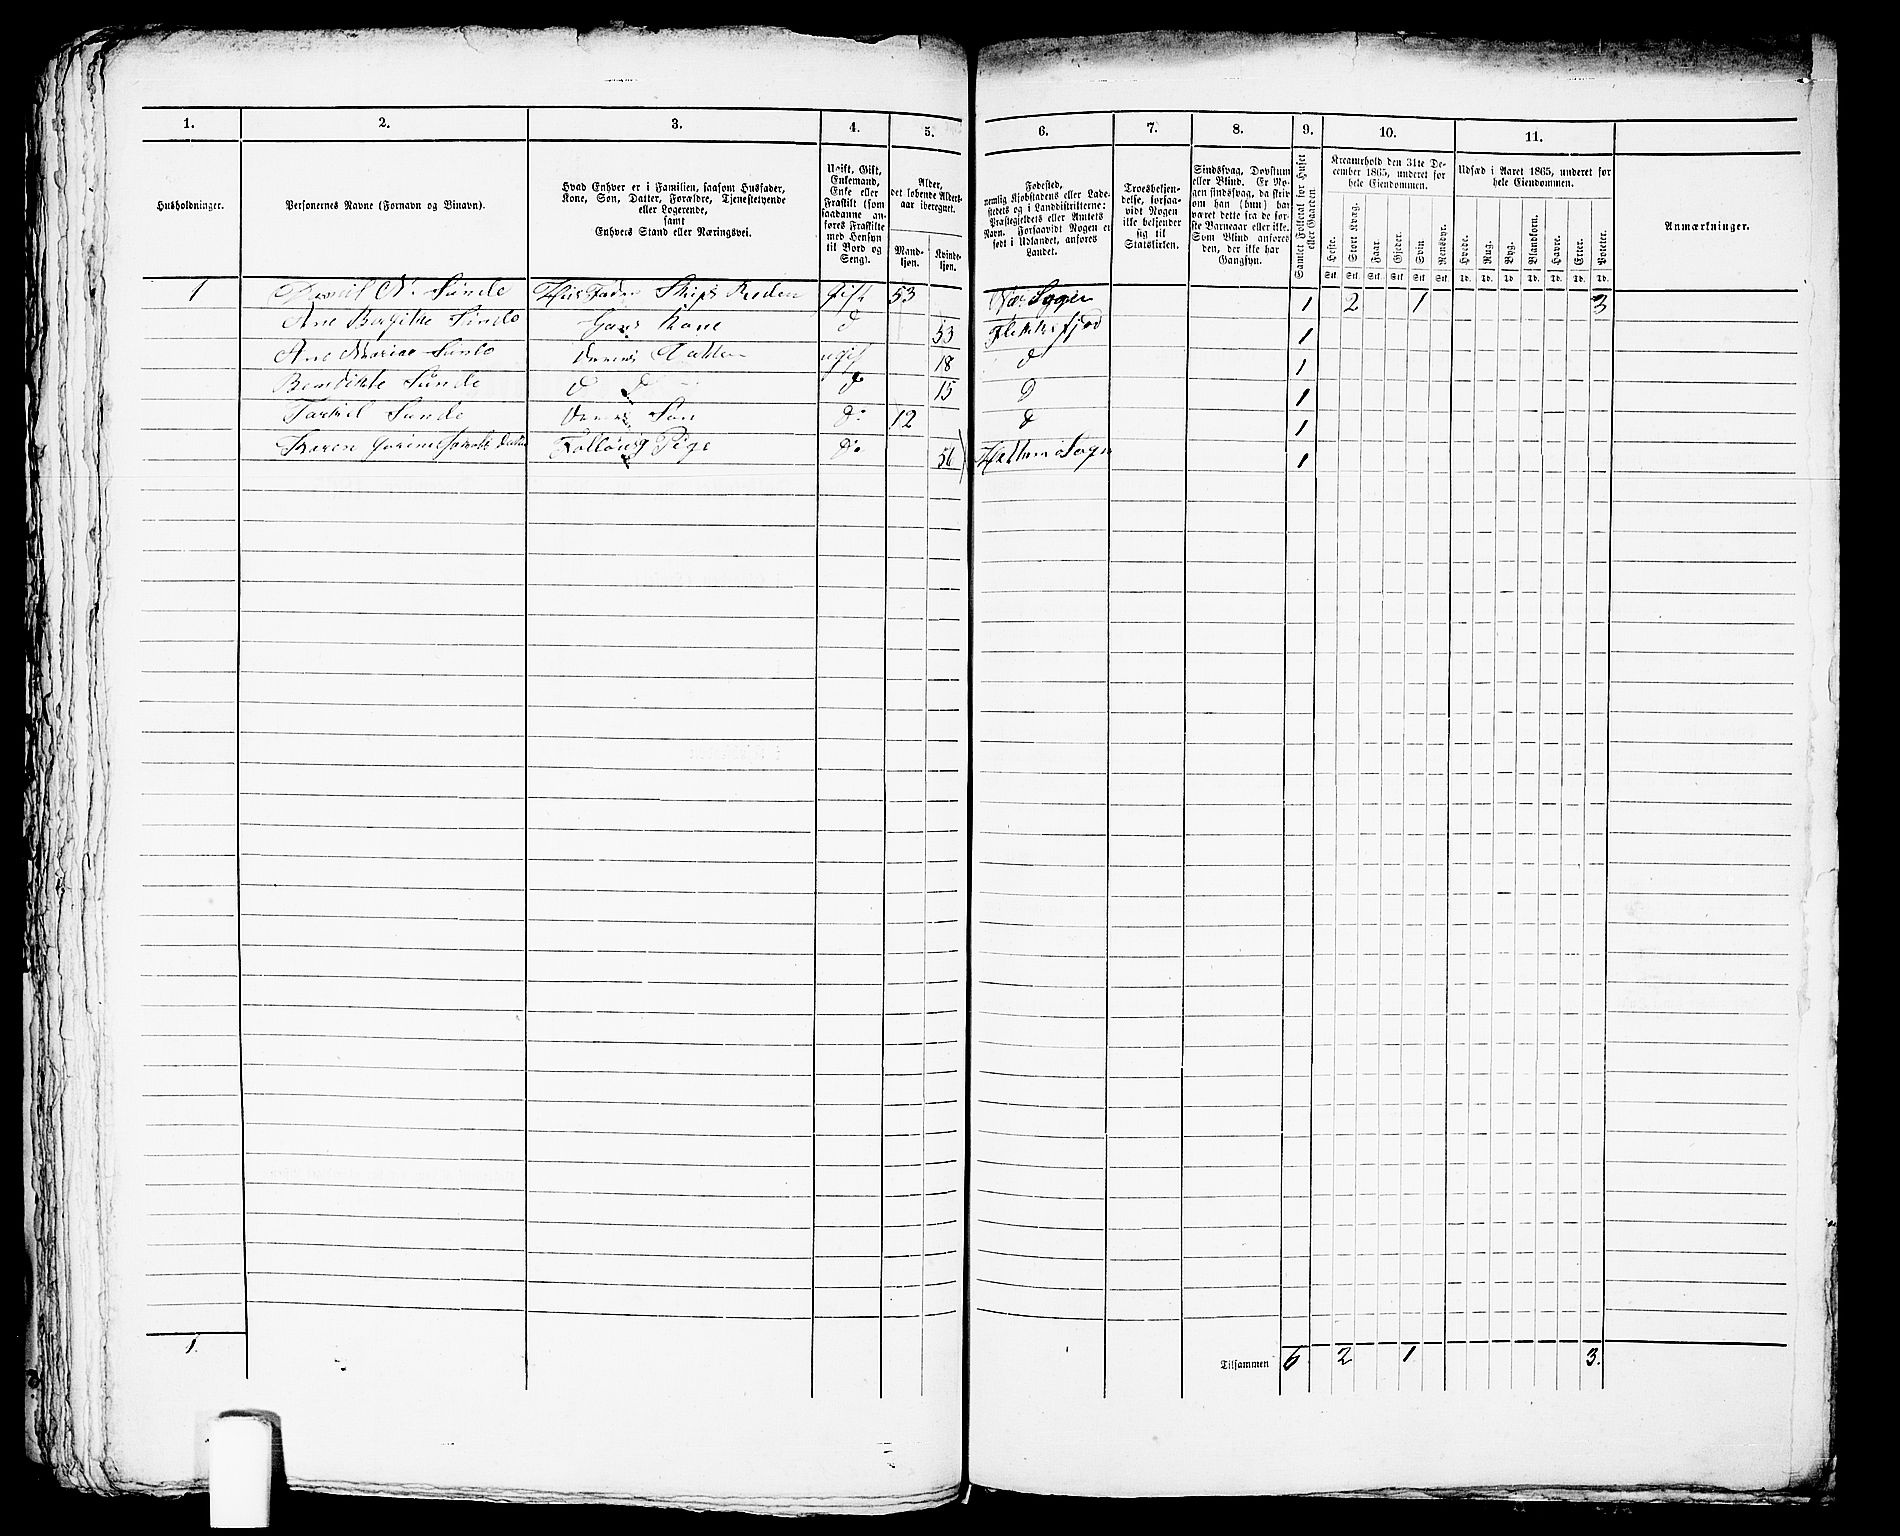 1. 2. 3. 4. 5. 6. 7. 8. 9. 10. 11.
Husholdninger.
Personernes Navne (Fornavn og Binavn).
Hvad Enhver er i Familien, saasom Husfader,
Kone, Søn, Datter, Forældre, Tjenestetyende
eller Logerende,
samt
Enhvers Stand eller Næringsvei.
Ugift, Gift,
Enkemand,
Enke eller
Fraskilt (som
saadanne an-
føres Fraskilte
med Hensyn
til Bord og
Seng).
Alder,
det løbende Alders-
aar iberegnet.
Mand-
kjøn.
Kvinde-
kjøn.
Fødested,
nemlig Kjøbstadens eller Lade-
stedets og i Landdistrikterne:
Præstegjeldets eller Amtets
Navn. Forsaavidt Nogen er
født i Udlandet, anføres
Landet.
Troesbekjen-
delse, forsaa-
vidt Nogen
ikke bekjender
sig til
Statskirken.
Sindssvag, Døvstum
eller Blind. Er No-
gen sindssvag, da skriv
om han (hun) har
været dette fra de før-
ste Barneaar eller ikke.
Som Blind anføres
den, der ikke har
Gangsyn.
Samlet Folketal for Huset
eller Gaarden.
Kreaturhold den 31te De-
cember 1865, underet for
hele Eiendommen.
Heste. Stort Kvæg. Faar. Gjeder. Svin. Rensdyr.
Stk. Stk. Stk. Stk. Stk. Stk.
Udsæd i Aaret 1865, underet for
hele Eiendommen.
Hvede. Rug. Byg. Blandkorn. Havre. Erter. Poteter.
Td. Td. Td. Td. Td. Td. Td.
Anmærkninger.
1 Daniel N. Sunde Husfader Skips Reder Gift 53 1 2 1 3
Ane Bergitte Sunde Hans Kone d 53 Flekkefjord 1
Ane Marie Sunde Deres Datter ugift 18 d 1
Benedikte Sunde d d d 15 D 1
Tarkil Sunde Deres Søn do 12 d 1
Karen do 56 Sogn 1
1. Tilsammen 6 2 1 3.